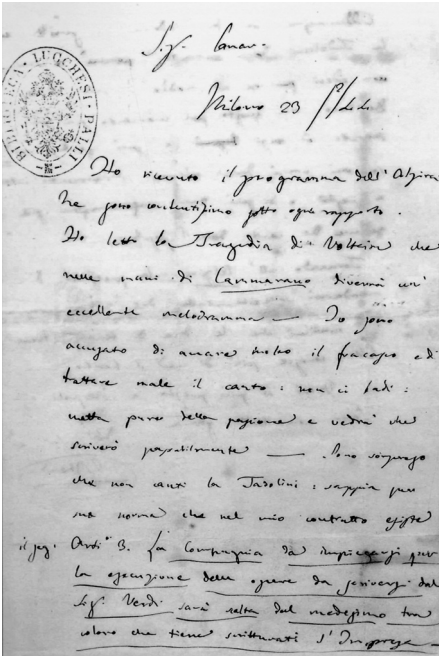 BIBLIOTECA · LUCCHESI · PALLI
Sig.
Milano 23
Ho ricevuto il programma dell'Alzira
Ne sono contentissimo sotto ogni rapporto.
Ho letto la Tragedia di Volteire che
nelle mani di Cammarano diverrà un'
eccellente melodramma — Io sono
accusato di amare molto il fracasso e di
trattare male il canto: non ci badi:
metta pure della passione e vedrà che
scriverò passabilmente — Sono sorpreso
che non canti la Tadolini: sappia per
sua norma che nel mio contratto esiste
il seg. Arti° 3. La Compagnia da impiegarsi per
la esecuzione delle opere da scriversi dal
Sig. Verdi sarà scelta dal medesimo tra
coloro che tiene scritturati l'Impresa